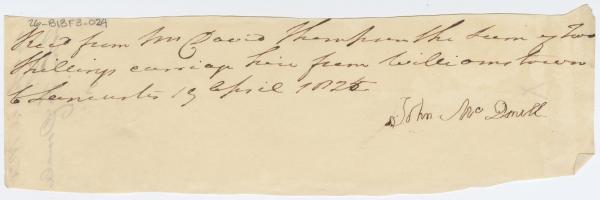 26-B13F3-024
Recd from Mr David Thompson the Sum of Two
Shillings carriage hire from Williamstown
to Lancaster 19 April 1826
John McDonell